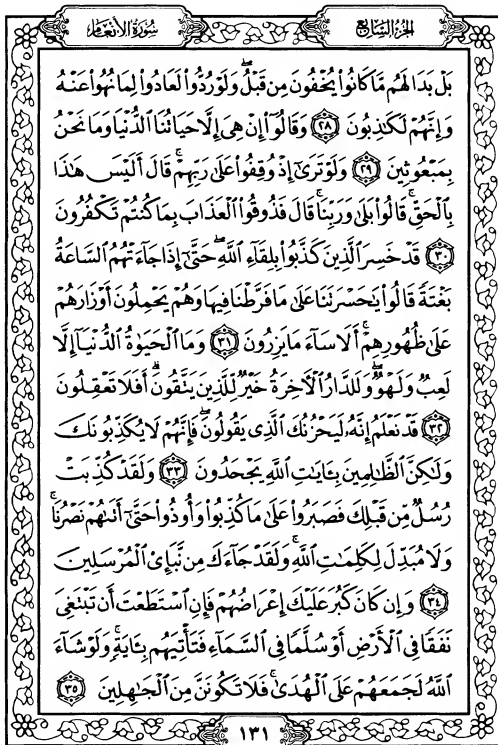 سُورَةُ الأَنْعَامِ
الجُزْءُ السَّابِعُ
بَلْ بَدَا لَهُم مَّا كَانُوا۟ يُخْفُونَ مِن قَبْلُ ۖ وَلَوْ رُدُّوا۟ لَعَادُوا۟ لِمَا نُهُوا۟ عَنْهُ
وَإِنَّهُمْ لَكَٰذِبُونَ ٢٨ وَقَالُوٓا۟ إِنْ هِىَ إِلَّا حَيَاتُنَا ٱلدُّنْيَا وَمَا نَحْنُ
بِمَبْعُوثِينَ ٢٩ وَلَوْ تَرَىٰٓ إِذْ وُقِفُوا۟ عَلَىٰ رَبِّهِمْ ۚ قَالَ أَلَيْسَ هَٰذَا
بِٱلْحَقِّ ۚ قَالُوا۟ بَلَىٰ وَرَبِّنَا ۚ قَالَ فَذُوقُوا۟ ٱلْعَذَابَ بِمَا كُنتُمْ تَكْفُرُونَ
٣٠ قَدْ خَسِرَ ٱلَّذِينَ كَذَّبُوا۟ بِلِقَآءِ ٱللَّهِ ۖ حَتَّىٰٓ إِذَا جَآءَتْهُمُ ٱلسَّاعَةُ
بَغْتَةً قَالُوا۟ يَٰحَسْرَتَنَا عَلَىٰ مَا فَرَّطْنَا فِيهَا وَهُمْ يَحْمِلُونَ أَوْزَارَهُمْ
عَلَىٰ ظُهُورِهِمْ ۚ أَلَا سَآءَ مَا يَزِرُونَ ٣١ وَمَا ٱلْحَيَوٰةُ ٱلدُّنْيَآ إِلَّا
لَعِبٌ وَلَهْوٌ ۖ وَلَلدَّارُ ٱلْءَاخِرَةُ خَيْرٌ لِّلَّذِينَ يَتَّقُونَ ۗ أَفَلَا تَعْقِلُونَ
٣٢ قَدْ نَعْلَمُ إِنَّهُۥ لَيَحْزُنُكَ ٱلَّذِى يَقُولُونَ ۖ فَإِنَّهُمْ لَا يُكَذِّبُونَكَ
وَلَٰكِنَّ ٱلظَّٰلِمِينَ بِـَٔايَٰتِ ٱللَّهِ يَجْحَدُونَ ٣٣ وَلَقَدْ كُذِّبَتْ
رُسُلٌ مِّن قَبْلِكَ فَصَبَرُوا۟ عَلَىٰ مَا كُذِّبُوا۟ وَأُوذُوا۟ حَتَّىٰٓ أَتَىٰهُمْ نَصْرُنَا ۚ
وَلَا مُبَدِّلَ لِكَلِمَٰتِ ٱللَّهِ ۚ وَلَقَدْ جَآءَكَ مِن نَّبَإِى۟ ٱلْمُرْسَلِينَ
٣٤ وَإِن كَانَ كَبُرَ عَلَيْكَ إِعْرَاضُهُمْ فَإِنِ ٱسْتَطَعْتَ أَن تَبْتَغِىَ
نَفَقًا فِى ٱلْأَرْضِ أَوْ سُلَّمًا فِى ٱلسَّمَآءِ فَتَأْتِيَهُم بِـَٔايَةٍ ۚ وَلَوْ شَآءَ
ٱللَّهُ لَجَمَعَهُمْ عَلَى ٱلْهُدَىٰ ۚ فَلَا تَكُونَنَّ مِنَ ٱلْجَٰهِلِينَ ٣٥
١٣١